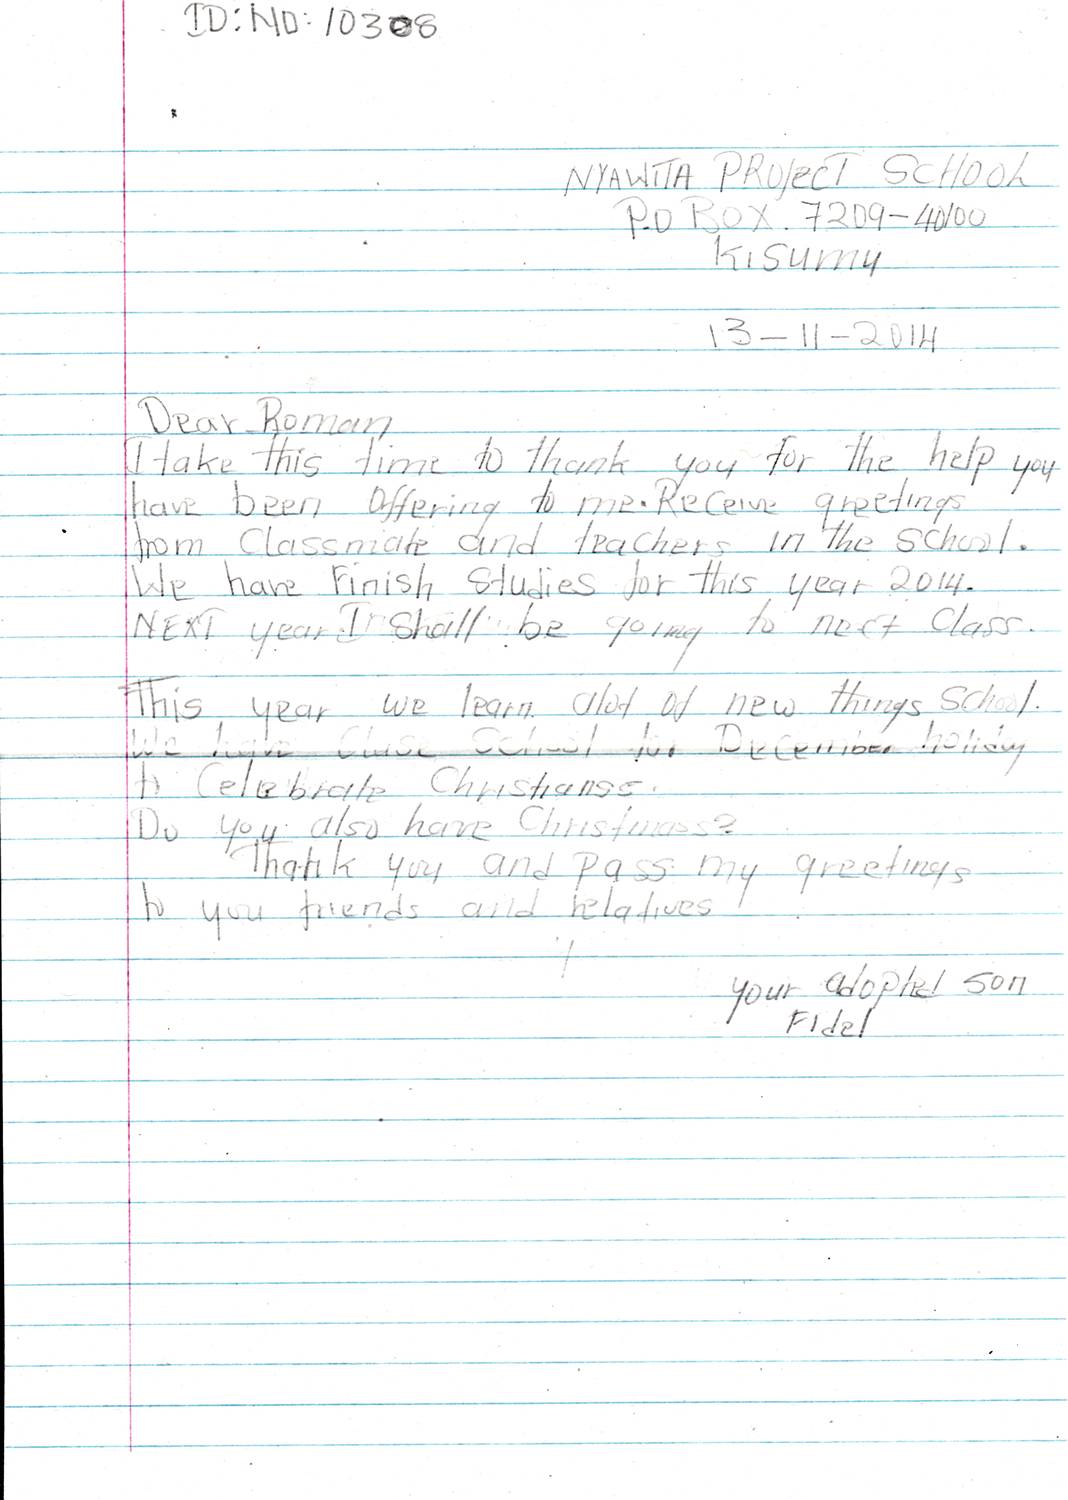 ID: NO: 10308
NYAWITA PROJECT SCHOOL
P.O BOX. 7209-40100
KISUMU
13-11-2014
Dear Roman
I take this time to thank you for the help you
have been offering to me. Receive greetings
from Classmate and teachers in the school.
We have Finish studies for this year 2014.
NEXT year I shall be going to next Class.
This year we learn alot of new things school.
We have Close School for December holiday
to Celebrate Christianss.
Do you also have Christmass?
Thank you and pass my greetings
to you friends and relatives
your adopted son
Fidel